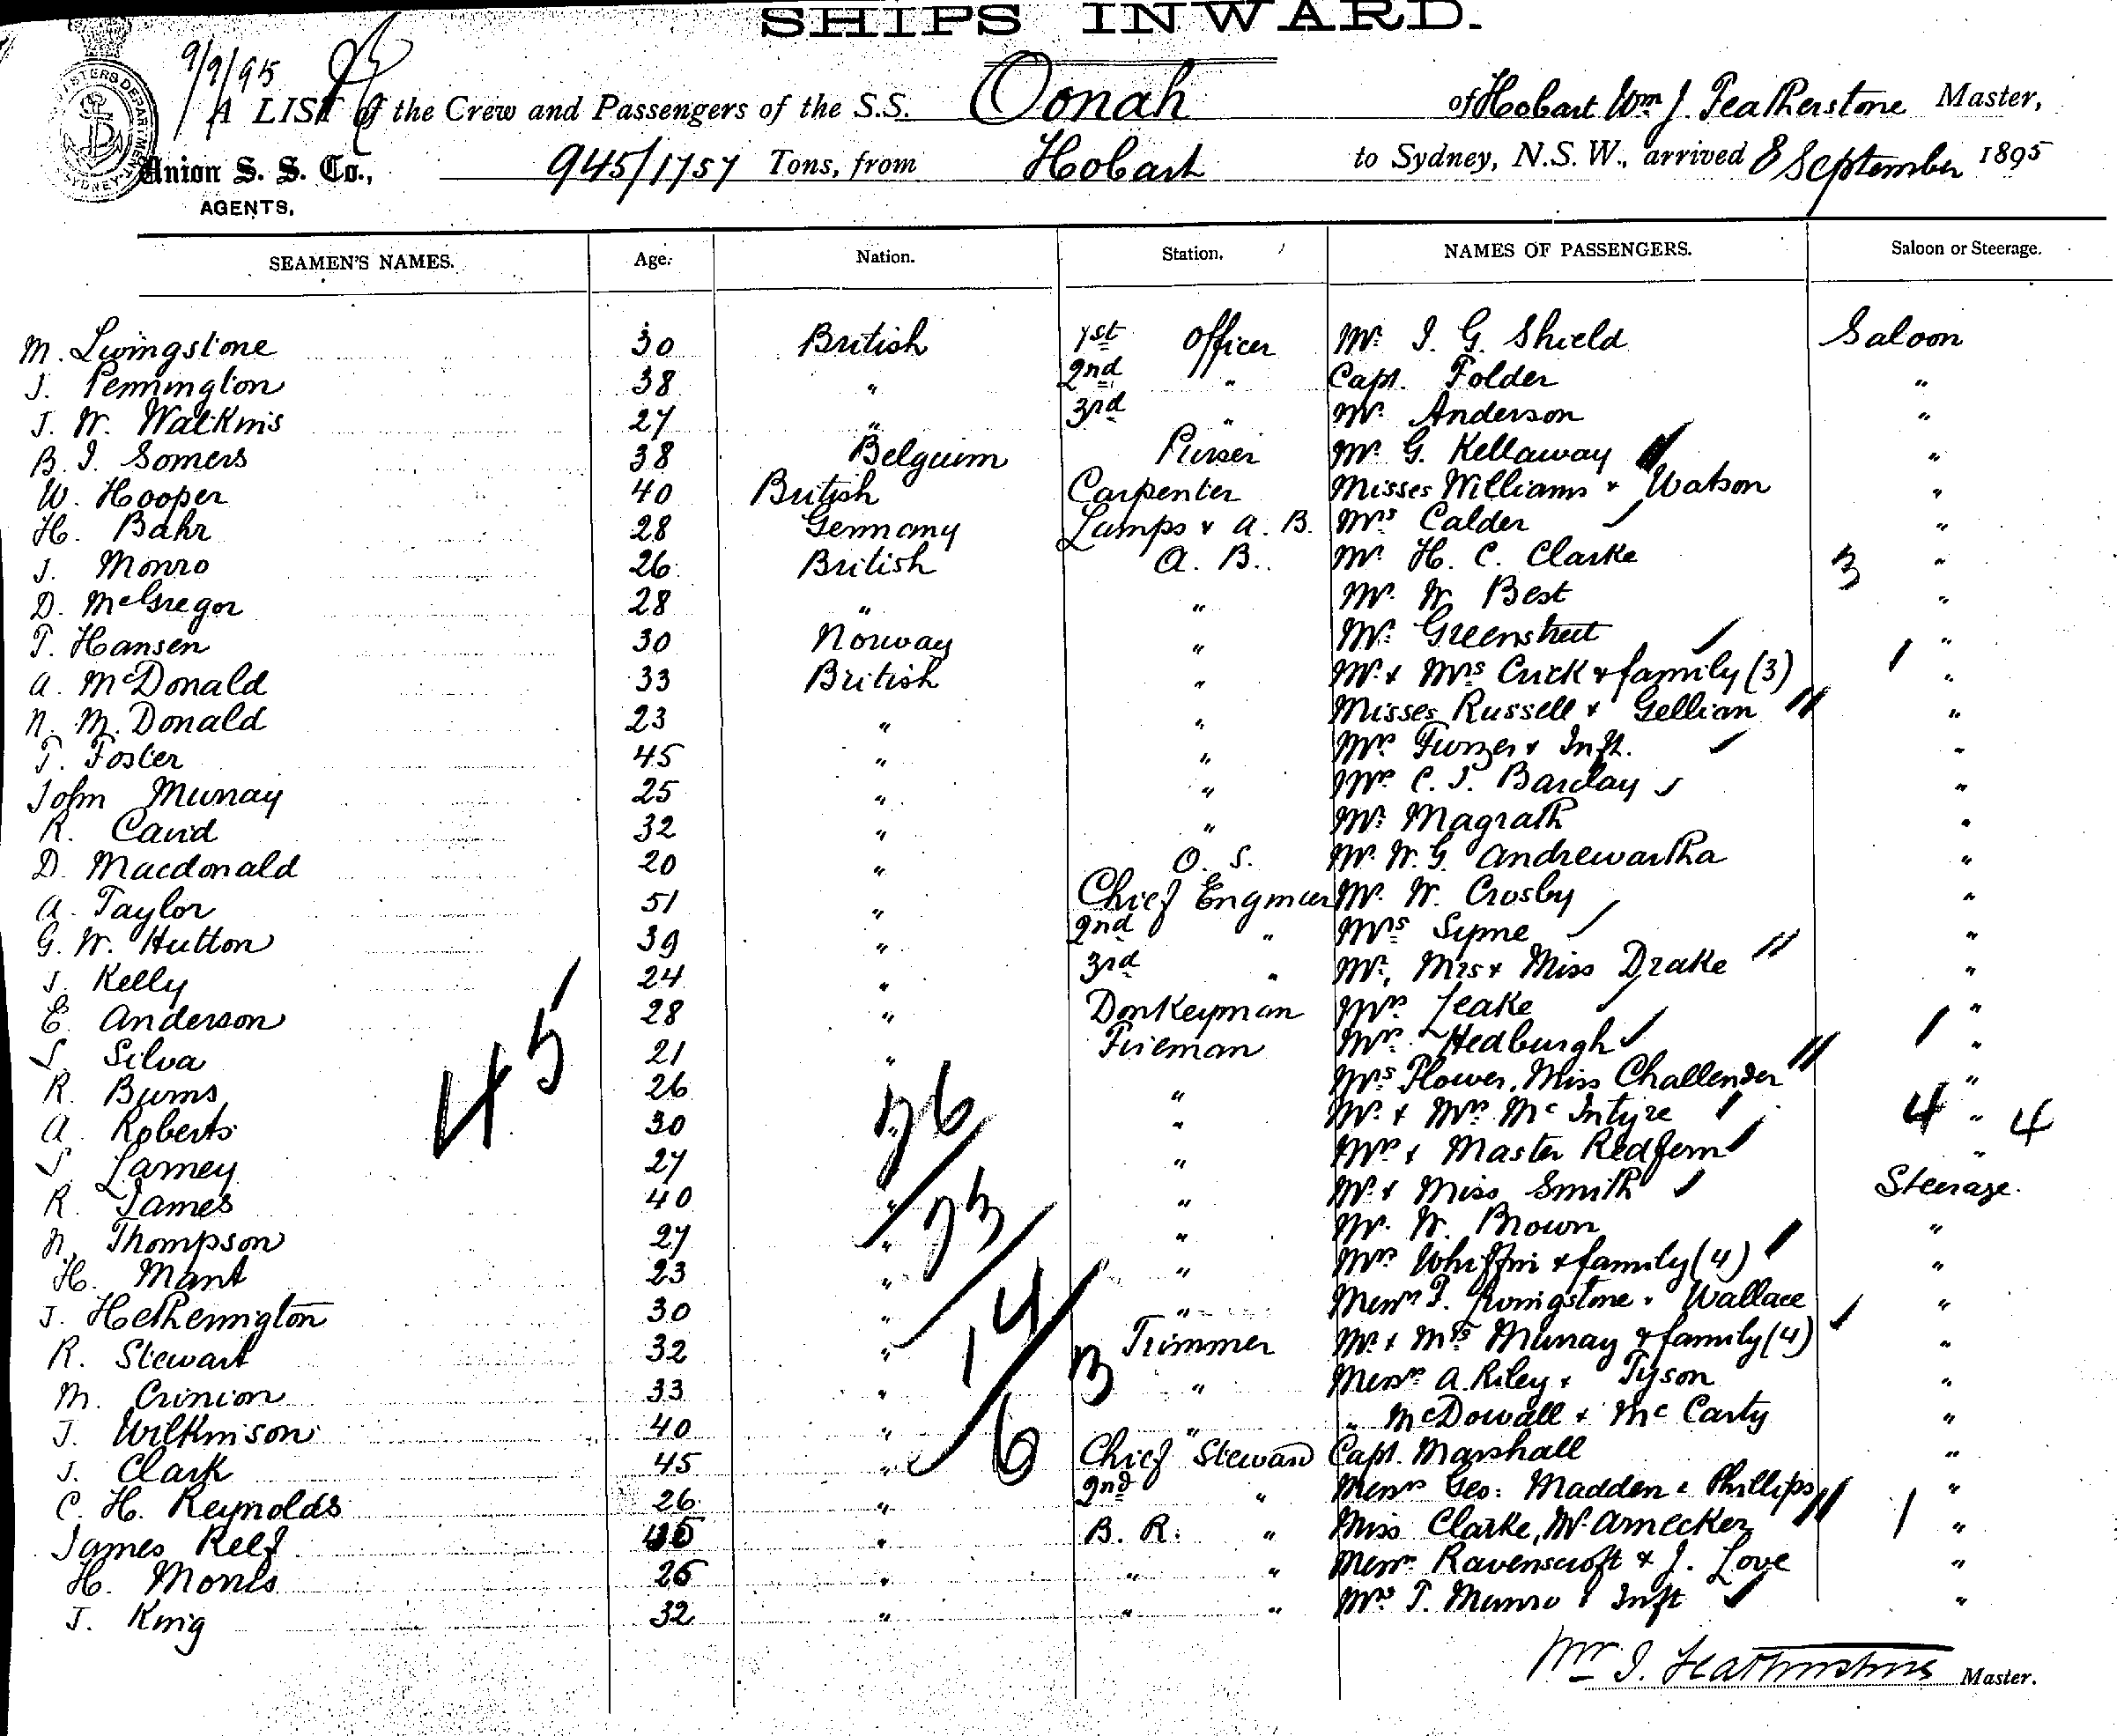 SHIPS INWARD.
9/9/95
A LIST of the Crew and Passengers of the S.S. Oonah of Hobart Wm J. Featherstone Master,
Union S. S. Co., 945/1757 Tons, from Hobart to Sydney, N.S.W., arrived 8 September 1895
AGENTS.
SEAMEN'S NAMES. Age. Nation. Station. NAMES OF PASSENGERS. Saloon or Steerage.
M. Livingstone 30 British 1st Officer Mr. I. G. Shield Saloon
J. Pennington 38 " 2nd " Capt. Folder "
J. W. Watkins 27 " 3rd " Mr. Anderson "
B. I. Somers 38 Belguim Purser Mr. G. Kellaway "
W. Hooper 40 British Carpenter Misses Williams & Watson "
H. Bahr 28 Germany Lamps & A. B. Mrs Calder "
J. Monro 26 British A. B. Mr. H. C. Clarke 3 "
D. McGregor 28 " " Mr. W. Best "
T. Hansen 30 Norway " Mr. Greenstreet "
A. McDonald 33 British " Mr. & Mrs Crick & family (3) "
N. M. Donald 23 " " Misses Russell & Gellian "
T. Foster 45 " " Mrs Furzer & Inft. "
John Murray 25 " " Mrs C. J. Barclay "
R. Caird 32 " " Mr. Magrath "
D. Macdonald 20 " O. S. Mr. W. G. Andrewartha "
A. Taylor 51 " Chief Engineer Mr. W. Crosby "
G. W. Hutton 39 " 2nd " Mrs Syme "
J. Kelly 24 " 3rd " Mr, Mrs & Miss Drake "
E. Anderson 28 " Donkeyman Mrs Leake "
S. Silva 21 " Fireman Mrs Hedburgh "
R. Burns 26 " " Mrs Plower, Miss Challender "
A. Roberts 30 " " Mr. & Mrs McIntyre 4 " 4
S. Larney 27 " " Mrs & Master Redfern "
R. James 40 " " Mr. & Miss Smith Steerage.
N. Thompson 27 " " Mr. W. Brown "
H. Mant 23 " " Mrs Whiffin & family (4) "
J. Hetherington 30 " " Messrs T. Livingstone & Wallace "
R. Stewart 32 " Trimmer Mr. & Mrs Murray & family (4) "
M. Crinion 33 " " Messrs A. Riley & Tyson "
J. Wilkinson 40 " " " McDowall & McCarty "
J. Clark 45 " Chief Steward Capt. Marshall "
C. H. Reynolds 26 " 2nd " Messrs Geo: Madden & Phillips "
James Relf " B. R. " Miss Clarke, Mr. Arnecker "
H. Morris 26 " " " Messrs Ravenscroft & J. Love "
J. King 32 " " " Mrs T. Munro & Inft "
45
76
73
14
6
3
Wm J. Featherstone Master.